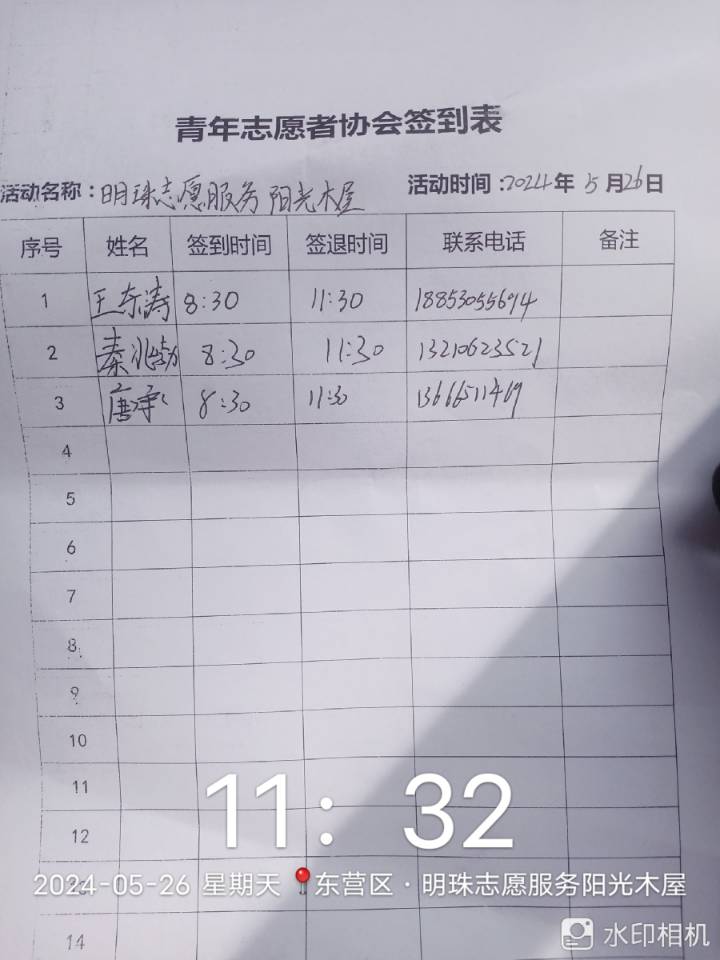 青年志愿者协会签到表
活动名称：明珠志愿服务 阳光木屋 活动时间：2024年 5月26日
序号 姓名 签到时间 签退时间 联系电话 备注
1 王东涛 8:30 11:30 18853055694
2 秦兆勃 8:30 11:30 13210623521
3 唐承 8:30 11:30 13666511469
4
5
6
7
8
9
10
11
11:32
12
13
2024-05-26 星期天 东营区·明珠志愿服务阳光木屋
14
水印相机